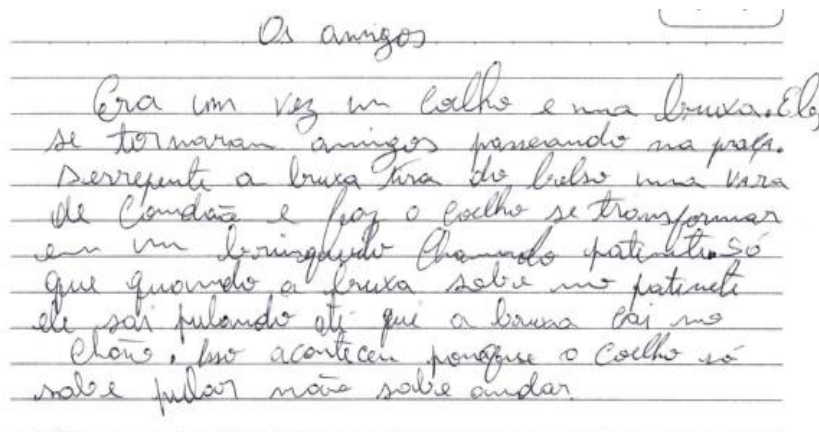 Os amigos
Era um vez um coelho e uma bruxa. Eles
se tornaram amigos passeando na praça.
Derrepente a bruxa tira do bolso uma vara
de Condão e faz o coelho se transformar
em um brinquedo Chamado patinete. Só
que quando a bruxa sobe no patinete
ele sai pulando até que a bruxa cai no
Chão. Isso aconteceu porque o Coelho só
sabe pular não sabe andar.